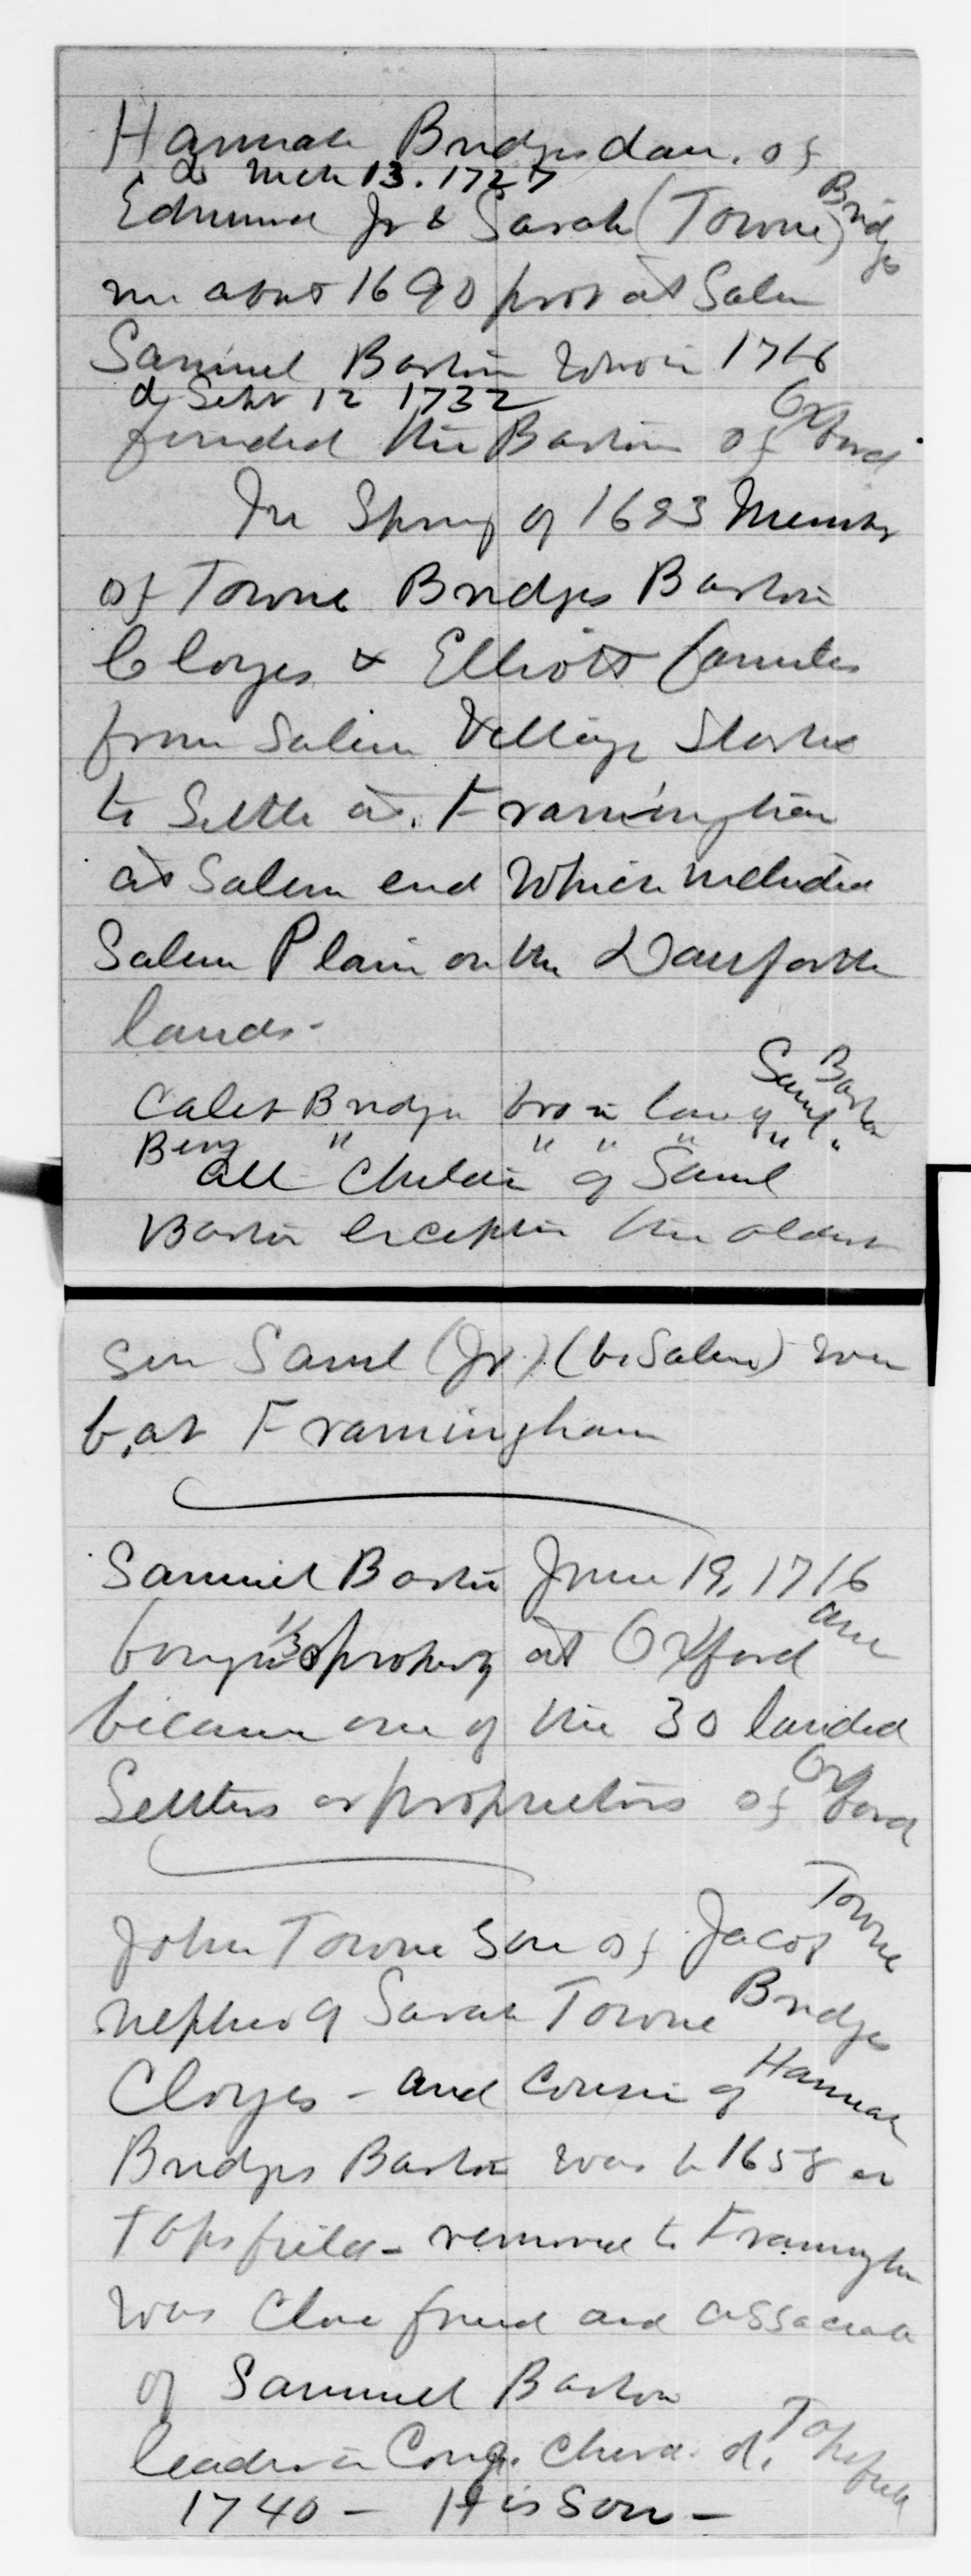 Hannah Bridges dau. of
d Mch 13. 1727
Edmund Jr & Sarah (Towne) Bridges
m about 1690 prob at Salem
Samuel Barton who in 1716
d Sept 12 1732
founded the Bartons of Oxford.
In Spring of 1693 Members
of Towne Bridges Barton
Cloyes & Elliott families
from Salem Village started
to settle at Framingham
at Salem end which included
Salem Plain on the Danforth
lands-
Caleb Bridges bro in law of Saml Barton
Benj " " " " " "
all children of Saml
Barton excepting the oldest
son Saml (Jr.) (b. Salem) were
b. at Framingham
Samuel Barton June 19, 1716
bought 1/3 of property at Oxford and
became one of the 30 landed
Settlers or proprietors of Oxford
John Towne son of Jacob Towne
nephew of Sarah Towne Bridges
Cloyes - and cousin of Hannah
Bridges Barton was b 1658 at
Topsfield - removed to Framingham
was close friend and associate
of Samuel Barton
leader in Cong. Church. d. Topsfield
1740 - His son -